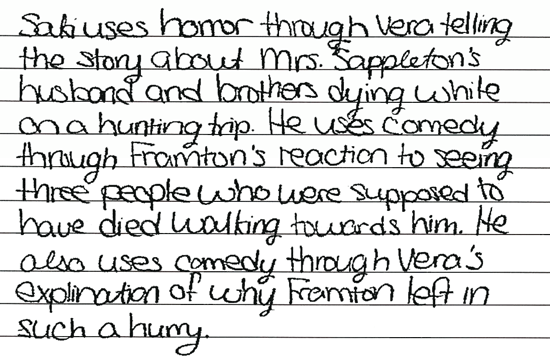 Saki uses homor through Vera telling
the story about Mrs. Sappleton's
husband and brothers dying while
on a hunting trip. He uses comedy
through Framton's reaction to seeing
three people who were supposed to
have died walking towards him. He
also uses comedy through Vera's
explination of why Framton left in
such a hurry.